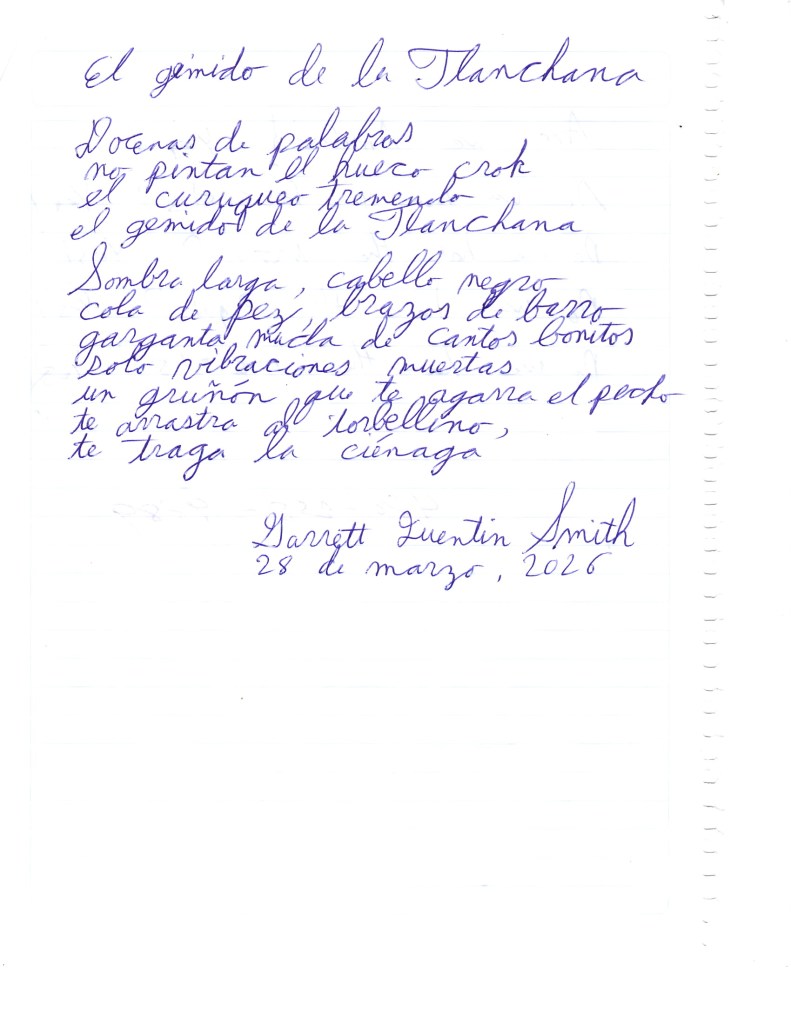 El gemido de la Tlanchana
Docenas de palabras
no pintan el hueco crok
el curuqueo tremendo
el gemido de la Tlanchana
Sombra larga, cabello negro
cola de pez, brazos de barro
garganta nucla de cantos bonitos
solo vibraciones muertas
un gruñón que te agarra el pecho
te arrastra al torbellino,
te traga la ciénaga
Garrett Quentin Smith
28 de marzo, 2026